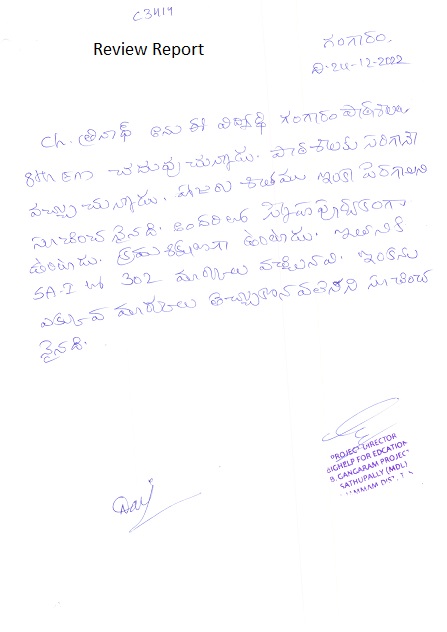 C3419
Review Report
గంగారం.
ది. 24-12-2022
Ch. త్రినాథ్ అను ఈ విద్యార్థి గంగారం పాఠశాలలో
8th క్లాస్ చదువు చున్నాడు. పాఠశాలకు సరిగానే
వచ్చు చున్నాడు. హాజరు శాతము ఇంకా పెరగాలని
సూచించ నైనది. అందరితో స్నేహ పూర్వకంగా
ఉంటాడు. క్రమశిక్షణగా ఉంటాడు. ఇతనికి
SA-I లో 302 మార్కులు వచ్చినవి. ఇంకను
ఎక్కువ మార్కులు తెచ్చుకొన వలెనని సూచించ
నైనది.
PROJECT DIRECTOR
BIGHELP FOR EDCATION
B. GANGARAM PROJECT
SATHUPALLY (MDL)
KHAMMAM DIST.